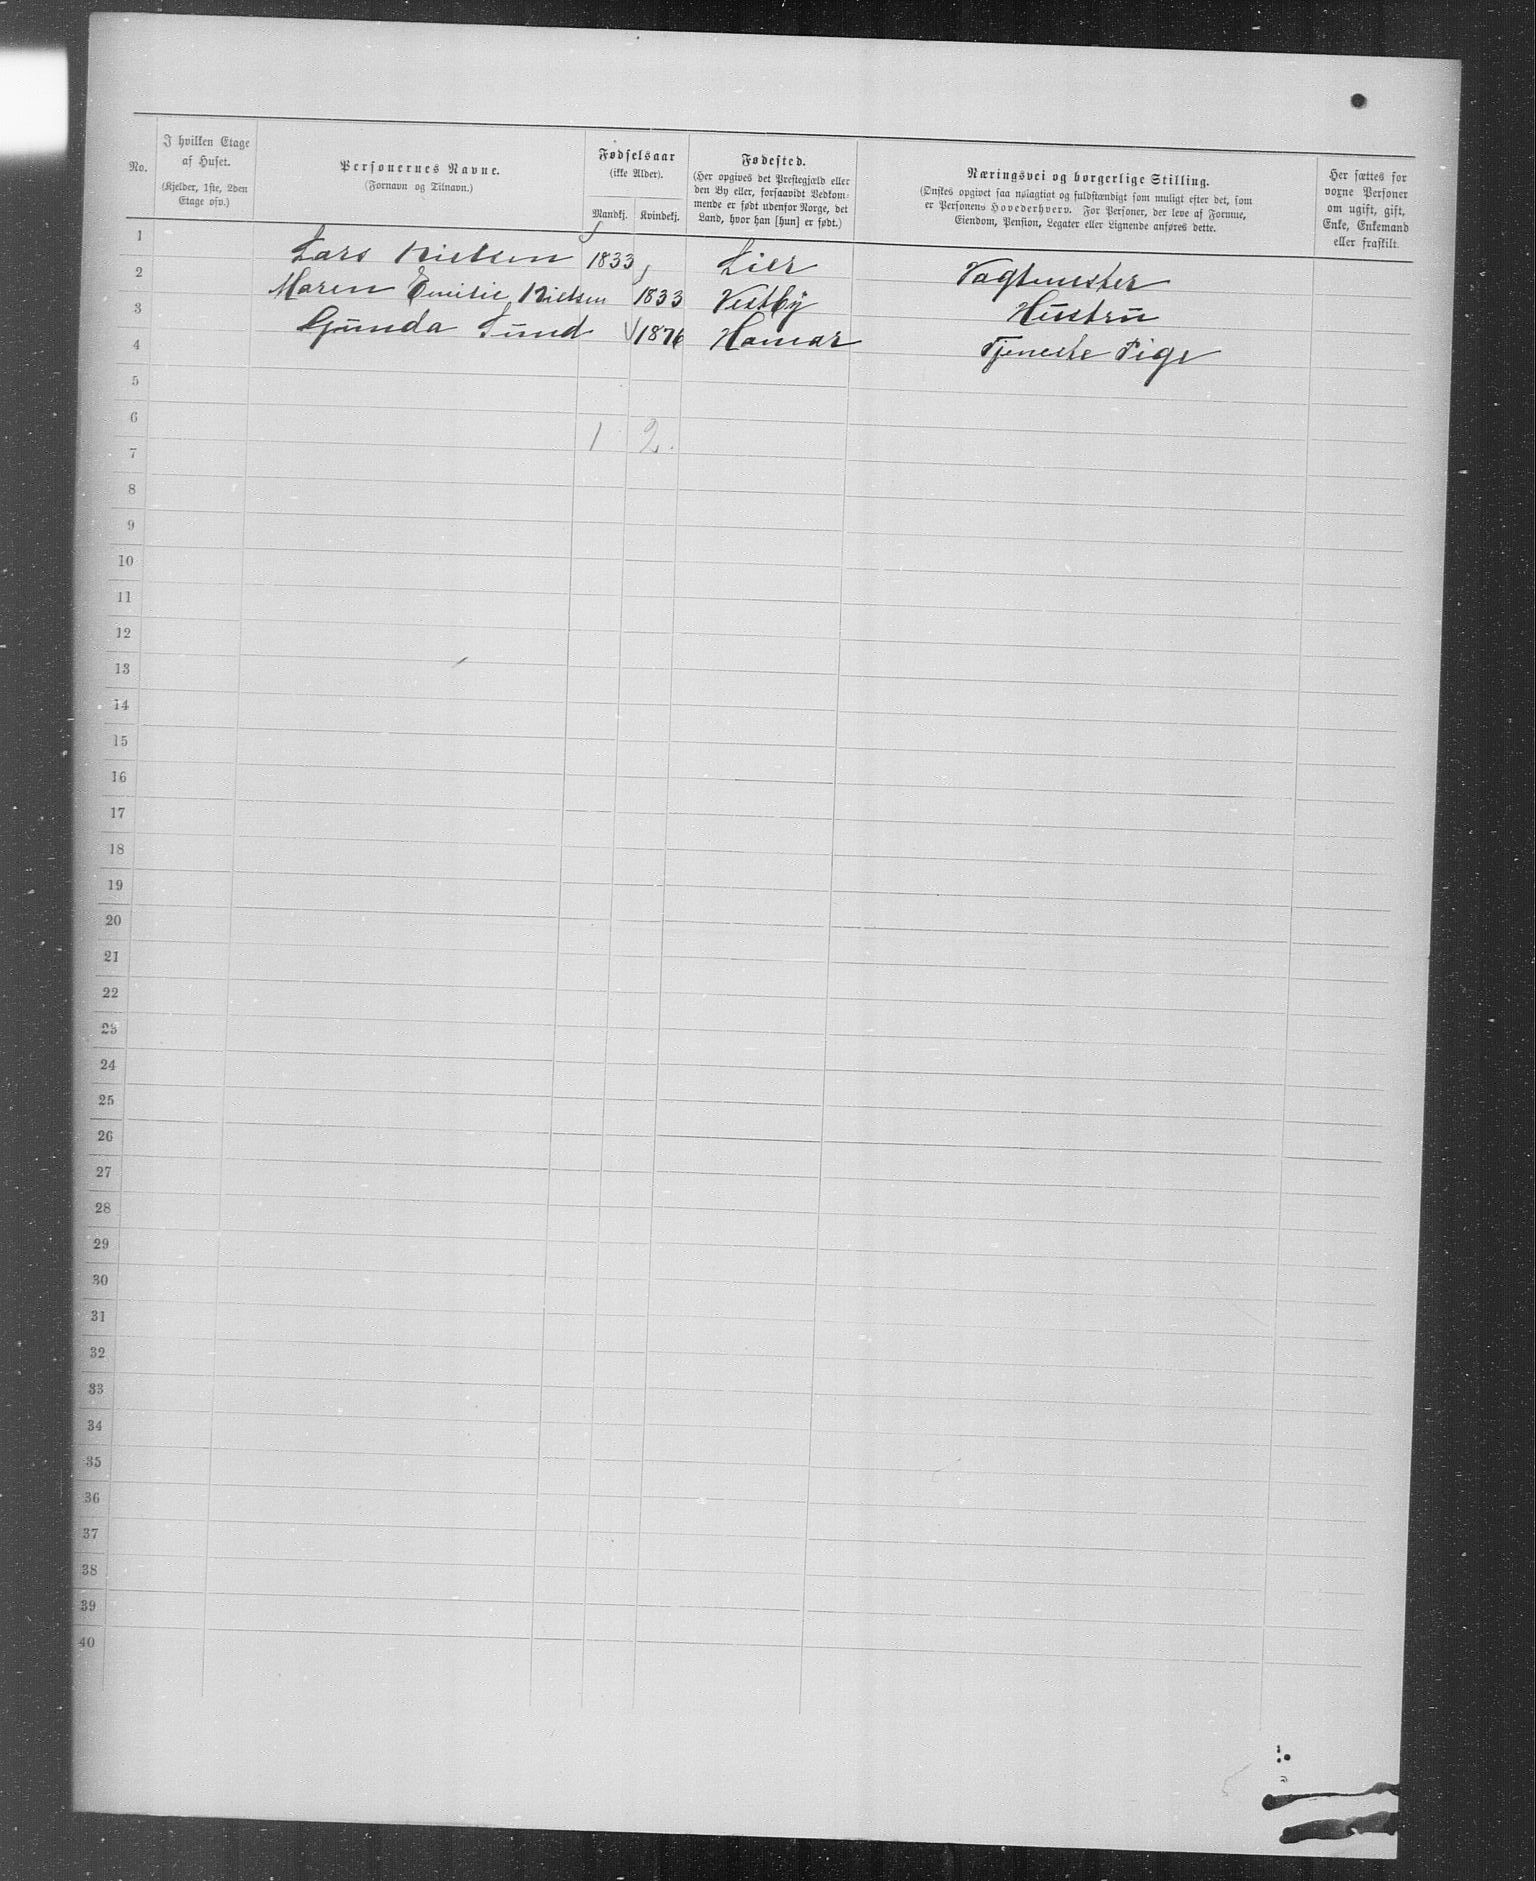 No.
I hvilken Etage
af Huset.
(Kjelder, 1ste, 2den
Etage osv.)
Personernes Navne.
(Fornavn og Tilnavn.)
Fødselsaar
(ikke Alder).
Mandkj.
Kvindekj.
Fødested.
(Her opgives det Prestegjæld eller
den By eller, forsaavidt Vedkom-
mende er født udenfor Norge, det
Land, hvor han [hun] er født.)
Næringsvei og borgerlige Stilling.
(Ønskes opgivet saa nøiagtigt og fuldstændigt som muligt efter det, som
er Personens Hovederhverv. For Personer, der leve af Formue,
Eiendom, Pension, Legater eller Lignende anføres dette.
Her sættes for
voxne Personer
om ugift, gift,
Enke, Enkemand
eller fraskilt.
1 Lars Nielsen 1833 Lier Vagtmester
2 Maren Emilie Nielsen 1833 Vestby Hustru
3 Gunda Lund 1876 Hamar Tjeneste Pige
4
5
6
1 2.
7
8
9
10
11
12
13
14
15
16
17
18
19
20
21
22
23
24
25
26
27
28
29
30
31
32
33
34
35
36
37
38
39
40